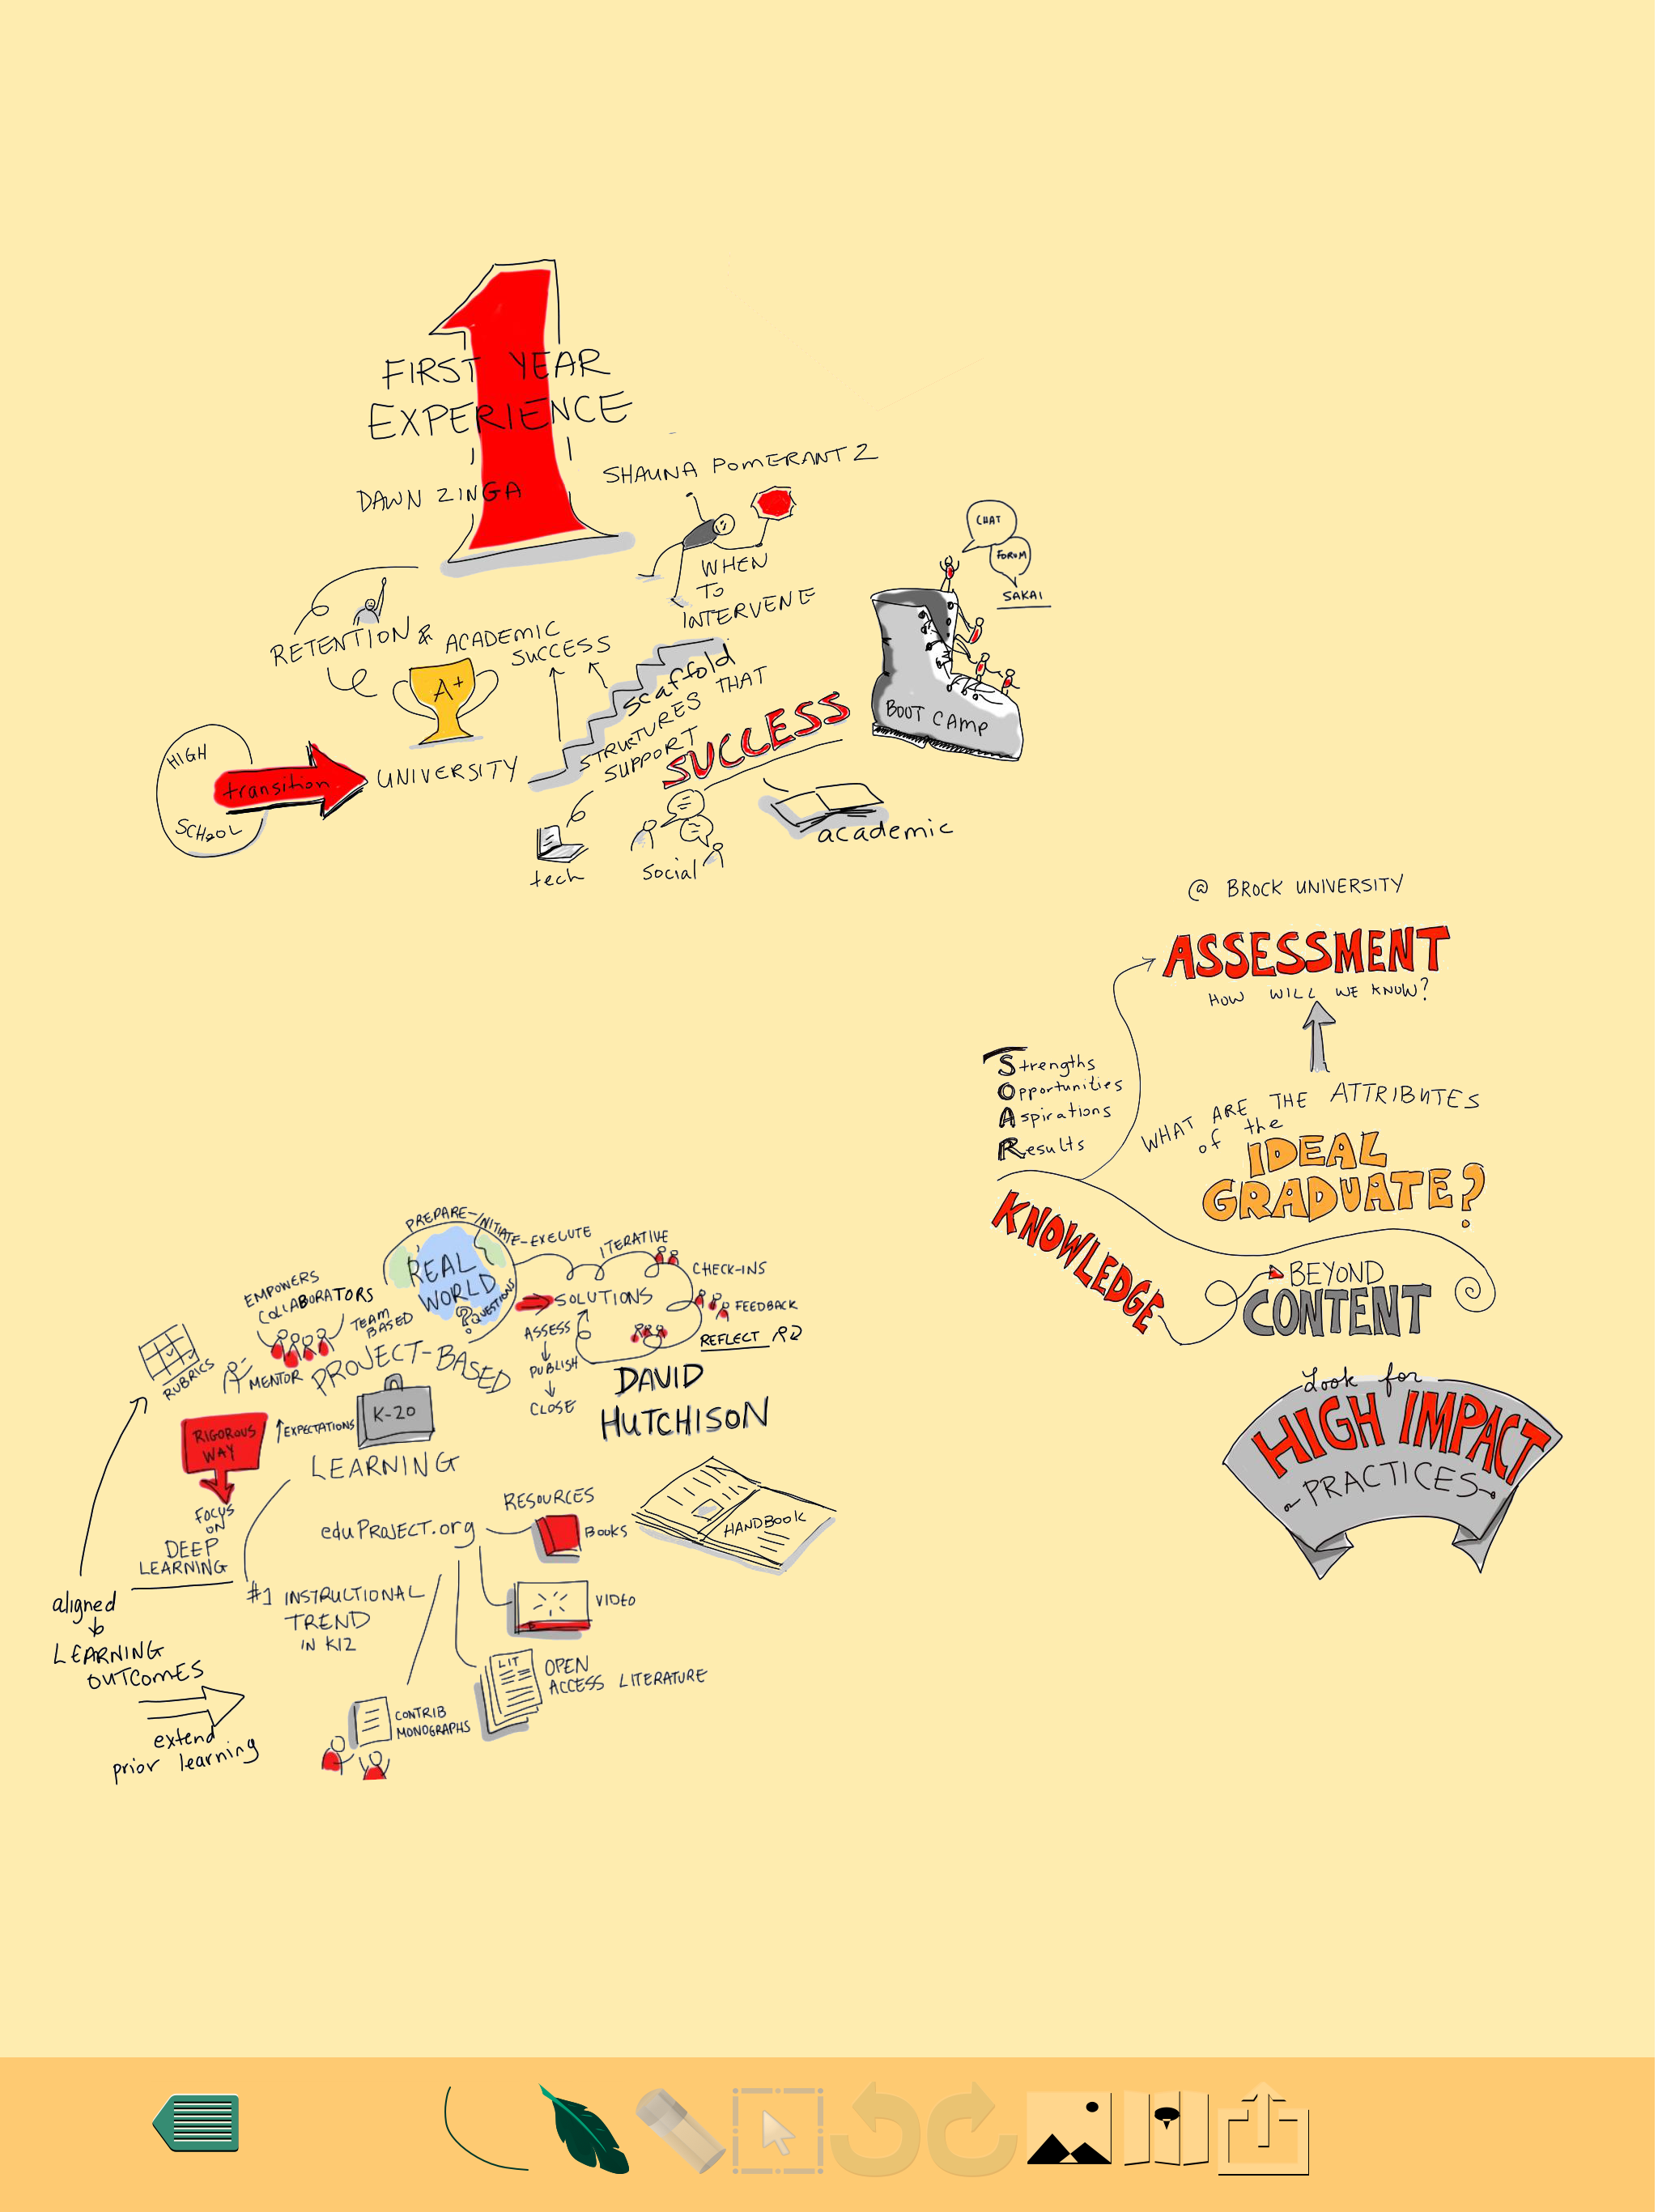 1
FIRST YEAR
EXPERIENCE
DAWN ZINGA
SHAUNA POMERANTZ
WHEN
TO
INTERVENE
RETENTION & ACADEMIC
SUCCESS
A+
HIGH
SCHOOL
transition
UNIVERSITY
scaffold
STRUCTURES THAT
SUPPORT
SUCCESS
tech
social
academic
CHAT
FORUM
SAKAI
BOOT CAMP
@ BROCK UNIVERSITY
ASSESSMENT
HOW WILL WE KNOW?
Strengths
Opportunities
Aspirations
Results
WHAT ARE THE ATTRIBUTES
of the
IDEAL
GRADUATE?
KNOWLEDGE
BEYOND
CONTENT
Look for
HIGH IMPACT
PRACTICES
PREPARE-INITIATE-EXECUTE
REAL
WORLD
?
QUESTIONS
ITERATIVE
CHECK-INS
FEEDBACK
REFLECT
SOLUTIONS
ASSESS
PUBLISH
CLOSE
EMPOWERS
COLLABORATORS
TEAM
BASED
RUBRICS
MENTOR
PROJECT-BASED
K-20
LEARNING
EXPECTATIONS
RIGOROUS
WAY
FOCUS
ON
DEEP
LEARNING
DAVID
HUTCHISON
aligned
LEARNING
OUTCOMES
extend
prior learning
#1 INSTRUCTIONAL
TREND
IN K12
eduPROJECT.org
RESOURCES
BOOKS
HANDBOOK
VIDEO
LIT
OPEN
ACCESS LITERATURE
CONTRIB
MONOGRAPHS